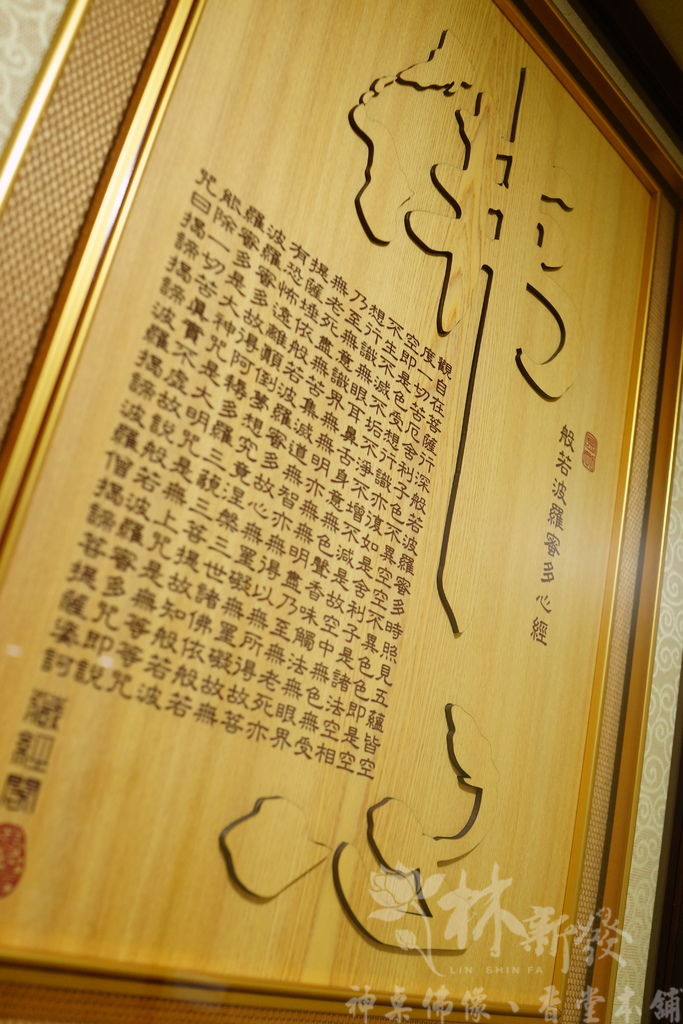 般若波羅蜜多心經
觀自在菩薩行深般若波羅蜜多時照見五蘊皆空
度一切苦厄舍利子色不異空空不異色色即是空
空即是色受想行識亦復如是舍利子是諸法空相
不生不滅不垢不淨不增不減是故空中無色無受
想行識無眼耳鼻舌身意無色聲香味觸法無眼界
乃至無意識界無無明亦無無明盡乃至無老死亦
無老死盡無苦集滅道無智亦無得以無所得故菩
提薩埵依般若波羅蜜多故心無罣礙無罣礙故無
有恐怖遠離顛倒夢想究竟涅槃三世諸佛依般若
波羅蜜多故得阿耨多羅三藐三菩提故知般若波
羅蜜多是大神咒是大明咒是無上咒是無等等咒
能除一切苦真實不虛故說般若波羅蜜多咒即說
咒曰揭諦揭諦波羅揭諦波羅僧揭諦菩提薩婆訶
藏經閣
林新發
LIN SHIN FA
神桌佛像、香堂本舖